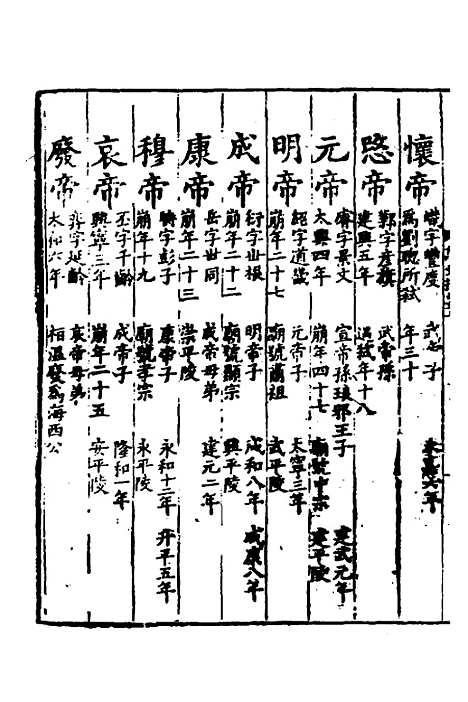 懷帝 熾字豐度 武帝子 永嘉六年
爲劉聰所弒 年三十
愍帝 鄴字彥旗 武帝孫
建興五年 遇弒年十八
元帝 睿字景文 宣帝孫琅邪王子 建武元年
太興四年 崩年四十七 廟號中宗 建平陵
明帝 紹字道畿 元帝子 太寧三年
崩年二十七 廟號肅祖 武平陵
成帝 衍字世根 明帝子 咸和八年 咸康八年
崩年二十二 廟號顯宗 興平陵
康帝 岳字世同 成帝母弟 建元二年
崩年二十三 崇平陵
穆帝 聃字彭子 康帝子 永和十二年 升平五年
崩年十九 廟號孝宗 永平陵
哀帝 丕字千齡 成帝子 隆和一年
興寧三年 崩年二十五 安平陵
廢帝 弈字延齡 哀帝母弟
太和六年 桓溫廢爲海西公